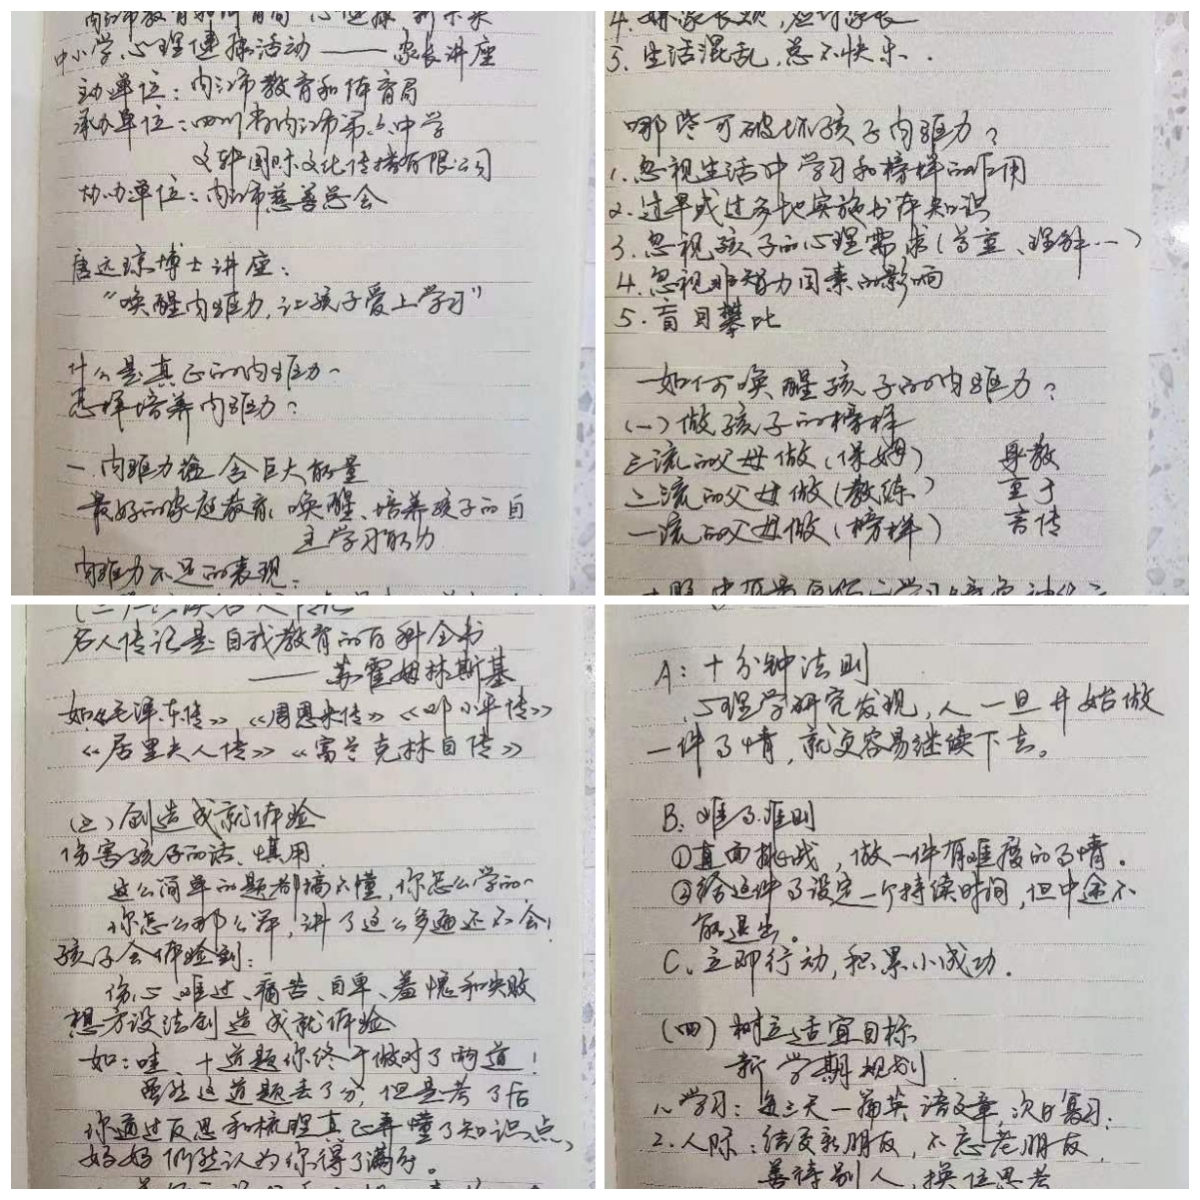 内江市教育和体育局 心健康 新未来
中小学心理健康活动——家长讲座
主办单位：内江市教育和体育局
承办单位：四川省内江市第六中学
文轩国际文化传播有限公司
协办单位：内江市慈善总会
唐远琼博士讲座：
“唤醒内驱力，让孩子爱上学习”
什么是真正的内驱力、
怎样培养内驱力？
一.内驱力蕴含巨大能量
最好的家庭教育：唤醒、培养孩子的自
主学习能力
内驱力不足的表现：
4.嫌家长烦，应付家长
5.生活混乱，总不快乐.
哪些可破坏孩子内驱力？
1.忽视生活中学习和榜样的作用
2.过早或过多地实施书本知识
3.忽视孩子的心理需求(尊重、理解…)
4.忽视非智力因素的影响
5.盲目攀比
如何唤醒孩子的内驱力？
(一)做孩子的榜样
三流的父母做(保姆) 身教
二流的父母做(教练) 重于
一流的父母做(榜样) 言传
名人传记是自我教育的百科全书
——苏霍姆林斯基
如《毛泽东传》《周恩来传》《邓小平传》
《居里夫人传》《富兰克林自传》
(三)创造成就体验
伤害孩子的话，慎用.
这么简单的题都搞不懂，你怎么学的、
你怎么那么笨，讲了这么多遍还不会！
孩子会体验到：
伤心、难过、痛苦、自卑、羞愧和失败
想方设法创造成就体验
如：哇 十道题你终于做对了两道！
虽然这道题丢了分，但是考了后
你通过反思和梳理真正弄懂了知识点，
妈妈仍然认为你得了满分。
A：十分钟法则
心理学研究发现，人一旦开始做
一件事情，就更容易继续下去。
B.难事准则
①直面挑战，做一件有难度的事情。
②给这件事设定一个持续时间，但中途不
能退出。
C.立即行动，积累小成功.
(四)树立适宜目标
新学期规划
1.学习：每三天一篇英语文章，次日复习；
2.人际：结交新朋友，不忘老朋友，
善待别人，换位思考